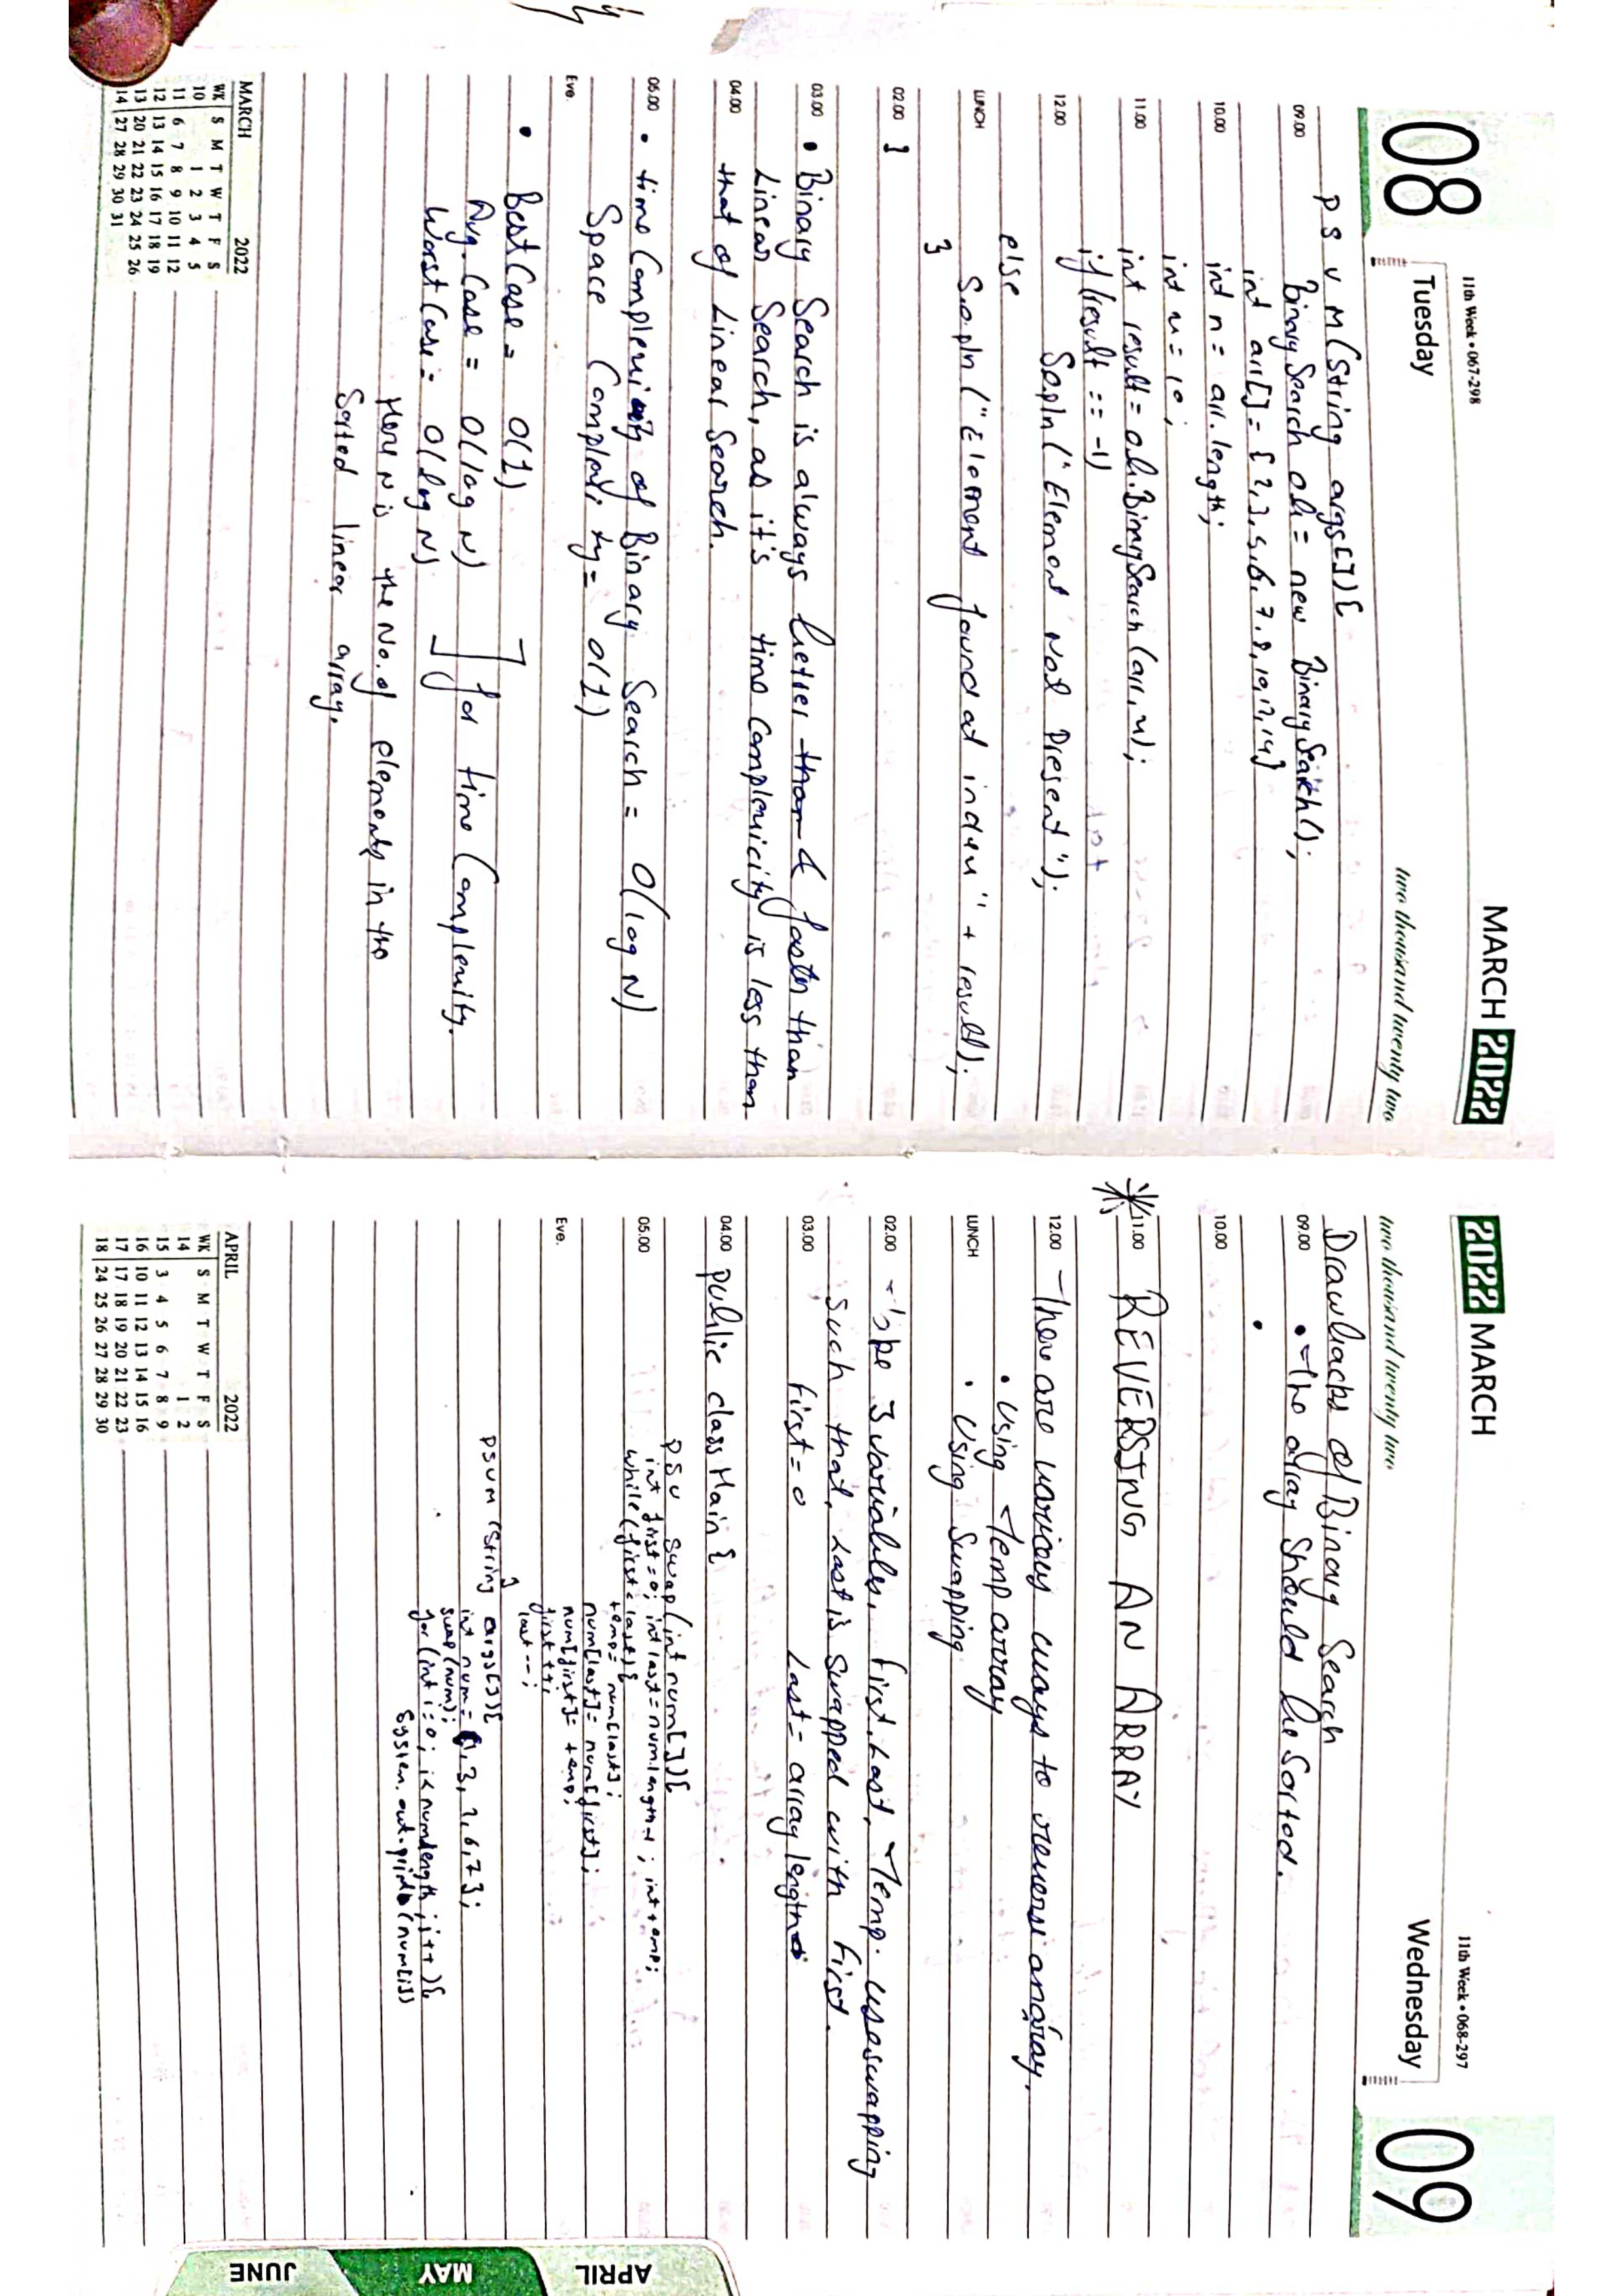 08
11th Week • 067-298
MARCH 2022
Tuesday
two thousand twenty two
P S V M (String args[]){
09.00 BinarySearch ob = new BinarySearch();
int arr[] = { 2, 3, 5, 6, 7, 8, 10, 12, 14}
10.00 int n = arr.length;
int x = 10;
11.00 int result = ob.BinarySearch (arr, x);
if (result == -1)
12.00 S.o.pln ("Element Not Present");
else
LUNCH S.o.pln ("Element found at index" + result);
}
02.00 }
03.00 • Binary Search is always better than & faster than
Linear Search, as it's time Complexicity is less than
04.00 that of Linear Search.
05.00 • time Complexity of Binary Search = O(log N)
Space Complexity = O(1)
Eve.
• Best Case = O(1)
Avg. Case = O(log N) ] for time Complexity.
Worst Case = O(log N)
Here N is the No. of elements in the
Sorted linear array.
MARCH 2022
WK S M T W T F S
10 1 2 3 4 5
11 6 7 8 9 10 11 12
12 13 14 15 16 17 18 19
13 20 21 22 23 24 25 26
14 27 28 29 30 31
2022 MARCH
11th Week • 068-297
Wednesday
09
two thousand twenty two
Drawbacks of Binary Search
09.00 • The array should be Sorted.
•
10.00
11.00 REVERSING AN ARRAY
12.00 There are various ways to reverse an array.
• Using Temp array
LUNCH • Using Swapping
02.00 Take 3 variables, First, Last, Temp. use swapping
such that, Last is swapped with First.
03.00 First = 0 Last = array length
04.00 public class Main {
P S V swap (int num[]){
05.00 int first = 0; int last = num.length-1; int temp;
while (first < last) {
temp = num[last];
num[last] = num[first];
num[first] = temp;
Eve. first ++;
last --;
}
PSVM (String args[]){
int num = {1, 3, 2, 6, 7};
swap (num);
for (int i = 0; i < num.length; i++){
System.out.print(num[i])
APRIL 2022
WK S M T W T F S
14 1 2
15 3 4 5 6 7 8 9
16 10 11 12 13 14 15 16
17 17 18 19 20 21 22 23
18 24 25 26 27 28 29 30
APRIL
MAY
JUNE